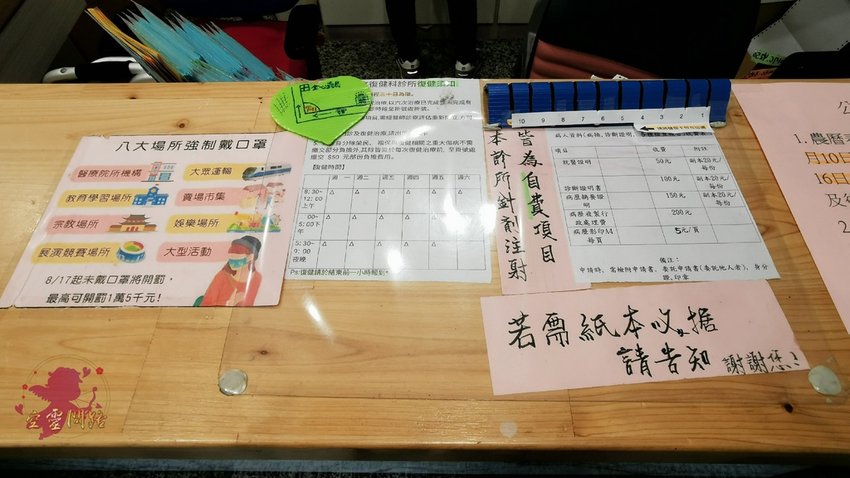 八大場所強制戴口罩
醫療院所機構
大眾運輸
教育學習場所
賣場市集
宗教場所
娛樂場所
展演競賽場所
大型活動
8/17起未戴口罩將開罰，
最高可開罰1萬5千元！
復健科診所復健須知
【復健時間】
週一 週二 週三 週四 週五 週六
8:30-12:00上午 △ △ △ △ △ △
5:00下午 △ △ △ △
5:30-9:00夜晚 △ △ △ △ △
Ps:復健請於結束前一小時報到。
本診所針劑注射
皆為自費項目
10 9 8 7 6 5 4 3 2 1
項目 收費 附註
就醫證明 50元 副本20元/每份
診斷證明書 100元 副本20元/每份
病歷摘要證明 150元 副本20元/每份
病歷複製行政處理費 200元
病歷影印M每頁 5元/頁
備註：
申請時，需檢附申請書、委託申請書(委託他人者)、身份證、印章
若需紙本收據
請告知 謝謝您！
公
1. 農曆
月10日
16日
及
2.
空靈問路